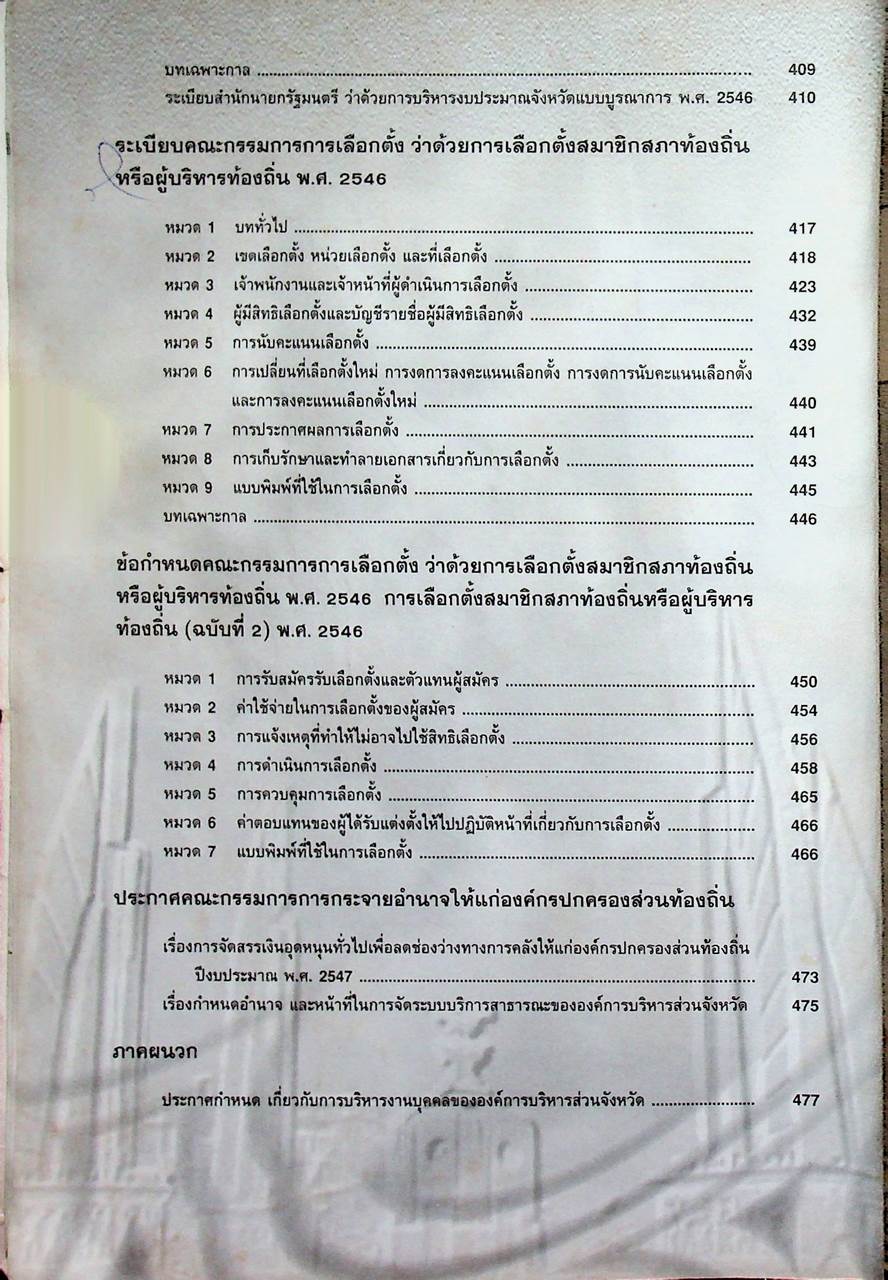 บทเฉพาะกาล ........................................ 409
ระเบียบสำนักนายกรัฐมนตรี ว่าด้วยการบริหารงบประมาณจังหวัดแบบบูรณาการ พ.ศ. 2546 410
ระเบียบคณะกรรมการการเลือกตั้ง ว่าด้วยการเลือกตั้งสมาชิกสภาท้องถิ่น
หรือผู้บริหารท้องถิ่น พ.ศ. 2546
หมวด 1 บททั่วไป ........................................ 417
หมวด 2 เขตเลือกตั้ง หน่วยเลือกตั้ง และที่เลือกตั้ง ........................................ 418
หมวด 3 เจ้าพนักงานและเจ้าหน้าที่ผู้ดำเนินการเลือกตั้ง ........................................ 423
หมวด 4 ผู้มีสิทธิเลือกตั้งและบัญชีรายชื่อผู้มีสิทธิเลือกตั้ง ........................................ 432
หมวด 5 การนับคะแนนเลือกตั้ง ........................................ 439
หมวด 6 การเปลี่ยนที่เลือกตั้งใหม่ การงดการลงคะแนนเลือกตั้ง การงดการนับคะแนนเลือกตั้ง
และการลงคะแนนเลือกตั้งใหม่ ........................................ 440
หมวด 7 การประกาศผลการเลือกตั้ง ........................................ 441
หมวด 8 การเก็บรักษาและทำลายเอกสารเกี่ยวกับการเลือกตั้ง ........................................ 443
หมวด 9 แบบพิมพ์ที่ใช้ในการเลือกตั้ง ........................................ 445
บทเฉพาะกาล ........................................ 446
ข้อกำหนดคณะกรรมการการเลือกตั้ง ว่าด้วยการเลือกตั้งสมาชิกสภาท้องถิ่น
หรือผู้บริหารท้องถิ่น พ.ศ. 2546 การเลือกตั้งสมาชิกสภาท้องถิ่นหรือผู้บริหาร
ท้องถิ่น (ฉบับที่ 2) พ.ศ. 2546
หมวด 1 การรับสมัครรับเลือกตั้งและตัวแทนผู้สมัคร ........................................ 450
หมวด 2 ค่าใช้จ่ายในการเลือกตั้งของผู้สมัคร ........................................ 454
หมวด 3 การแจ้งเหตุที่ทำให้ไม่อาจไปใช้สิทธิเลือกตั้ง ........................................ 456
หมวด 4 การดำเนินการเลือกตั้ง ........................................ 458
หมวด 5 การควบคุมการเลือกตั้ง ........................................ 465
หมวด 6 ค่าตอบแทนของผู้ได้รับแต่งตั้งให้ไปปฏิบัติหน้าที่เกี่ยวกับการเลือกตั้ง .................... 466
หมวด 7 แบบพิมพ์ที่ใช้ในการเลือกตั้ง ........................................ 466
ประกาศคณะกรรมการการกระจายอำนาจให้แก่องค์กรปกครองส่วนท้องถิ่น
เรื่องการจัดสรรเงินอุดหนุนทั่วไปเพื่อลดช่องว่างทางการคลังให้แก่องค์กรปกครองส่วนท้องถิ่น
ปีงบประมาณ พ.ศ. 2547 ........................................ 473
เรื่องกำหนดอำนาจ และหน้าที่ในการจัดระบบบริการสาธารณะขององค์การบริหารส่วนจังหวัด 475
ภาคผนวก
ประกาศกำหนด เกี่ยวกับการบริหารงานบุคคลขององค์การบริหารส่วนจังหวัด ........................ 477